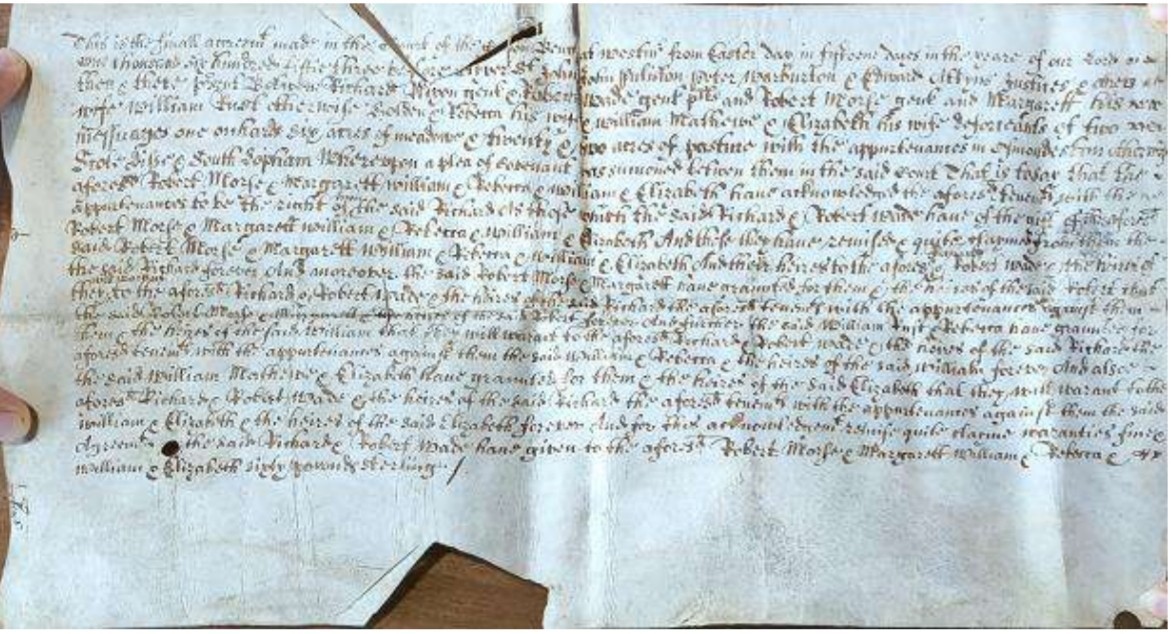 This is the finall agreemt made in the Court of the Comon Bench at westmr from Easter day in fifteene dayes in the yeare of our Lord one
one thousand six hundred fiftie three before Oliver St John John Puliston Peter Warburton & Edward Atkins Justices & others
then & there psent Betweene Richard Nixon gent & Robert Wade gent plts and Robert Morse gent and Margarett his wife
wife William Rust otherwise & Rebecca his wife & William Mathewe & Elizabeth his wife deforceants of two
messuages one orchard six acres of meadowe & twenty & two acres of pasture with the appurtenances in
& South Lopham Whereupon a plea of Covenant was summoned betwen them in the said Court That is to say that the
aforesd Robert Morse & Margarett William & Rebecca & William & Elizabeth have acknowledged the aforesd tenemts with the
appurtenances to be the right of the said Richard As those which the said Richard & Robert Wade have of the gift of the aforesd
Robert Morse & Margarett William & Rebecca & William & Elizabeth And those they have remised & quite claymed from them the
said Robert Morse & Margarett William & Rebecca & William & Elizabeth And their heires to the aforesd & Robert Wade & the heires of
the said Richard forever And moreover the said Robert Morse & Margarett have graunted for them & the heires of the said Robert that
they to the aforesd Richard & Robert Wade & the heires of the said Richard the aforesd tenemts with the appurtenances against them
the said Robert Morse & Margarett & the heires of the said Robert forever And further the said William Rust & Rebecca have graunted for
them & the heires of the said William that they will warant to the aforesd Richard & Robert Wade & the heires of the said Richard the
aforesd tenemts with the appurtenances against them the said William & Rebecca & the heires of the said William forever And alsoe
the said William Mathewe & Elizabeth have graunted for them & the heires of the said Elizabeth that they will warant to the
aforesd Richard & Robert Wade & the heires of the said Richard the aforesd tenemts with the appurtenances against them the said
William & Elizabeth & the heires of the said Elizabeth forever And for this acknowledgemt remise quite clayme waranties fine &
Agreemt the said Richard & Robert Wade have given to the aforesd Robert Morse & Margarett William & Rebecca &
William & Elizabeth sixty pounds sterling